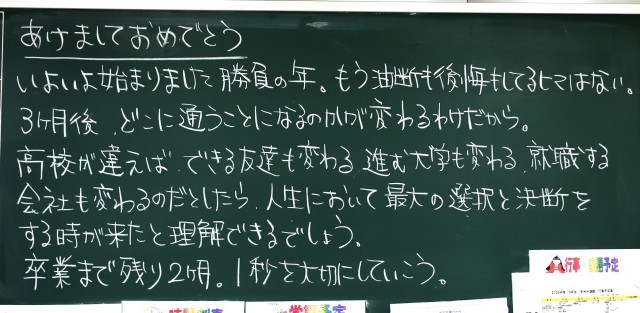 あけましておめでとう
いよいよ始まりました勝負の年。もう油断も後悔もしてるヒマはない。
3ヶ月後、どこに通うことになるのかが変わるわけだから。
高校が違えば、できる友達も変わる、進む大学も変わる、就職する
会社も変わるのだとしたら、人生において最大の選択と決断を
する時が来たと理解できるでしょう。
卒業まで残り2ヶ月。1秒を大切にしていこう。
行事 予定
予定